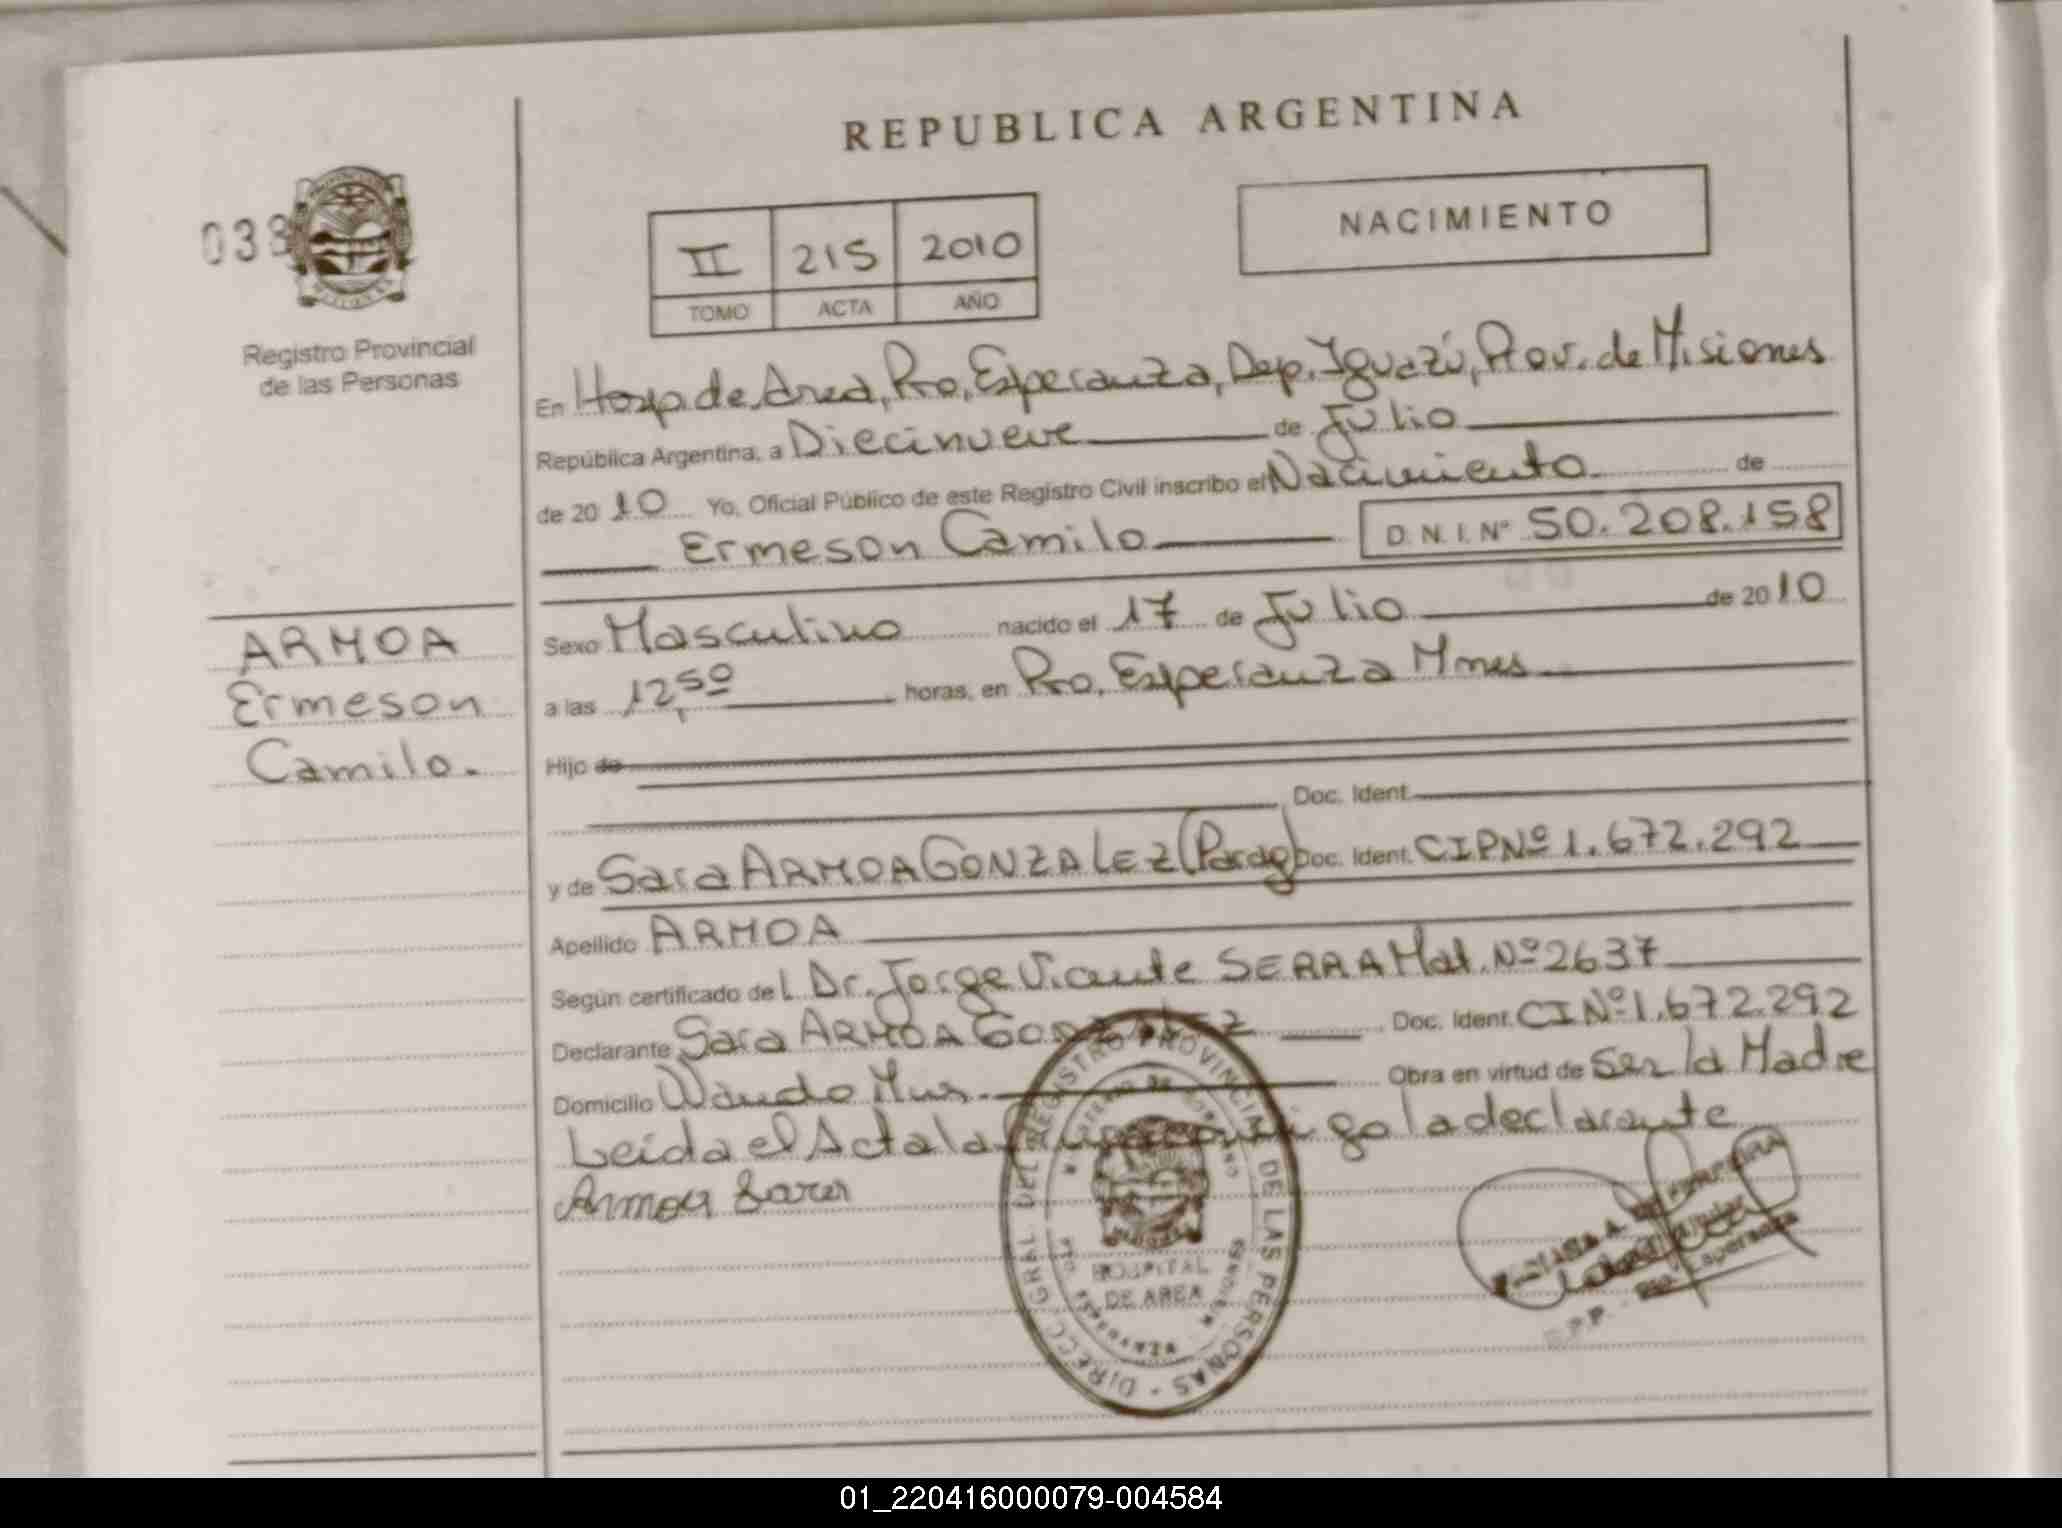 REPUBLICA ARGENTINA
038
II 215 2010
TOMO ACTA AÑO
NACIMIENTO
Registro Provincial
de las Personas
En Hosp. de Area, Pto. Esperanza, Dep. Iguazú, Prov. de Misiones
República Argentina, a Diecinueve de Julio
de 2010 Yo, Oficial Público de este Registro Civil inscribo el Nacimiento de
Ermeson Camilo D.N.I. N° 50.208.158
ARMOA
Ermeson
Camilo.
Sexo Masculino nacido el 17 de Julio de 2010
a las 12,50 horas, en Pto. Esperanza Mnes
Hijo de
Doc. Ident.
y de Sara ARMOA GONZALEZ (Parag) Doc. Ident. CIPNº 1.672.292
Apellido ARMOA
Según certificado del Dr. Jorge Vicente SERRA Mat. Nº 2637
Declarante Sara ARMOA GONZALEZ Doc. Ident. CI Nº 1.672.292
Domicilio Wanda Mns. Obra en virtud de Ser la Madre
Leida el Acta la declarante
Armoa Sara
DIRECC. GRAL. DEL REGISTRO PROVINCIAL DE LAS PERSONAS
HOSPITAL
DE AREA
Pto. Esperanza
01_220416000079-004584